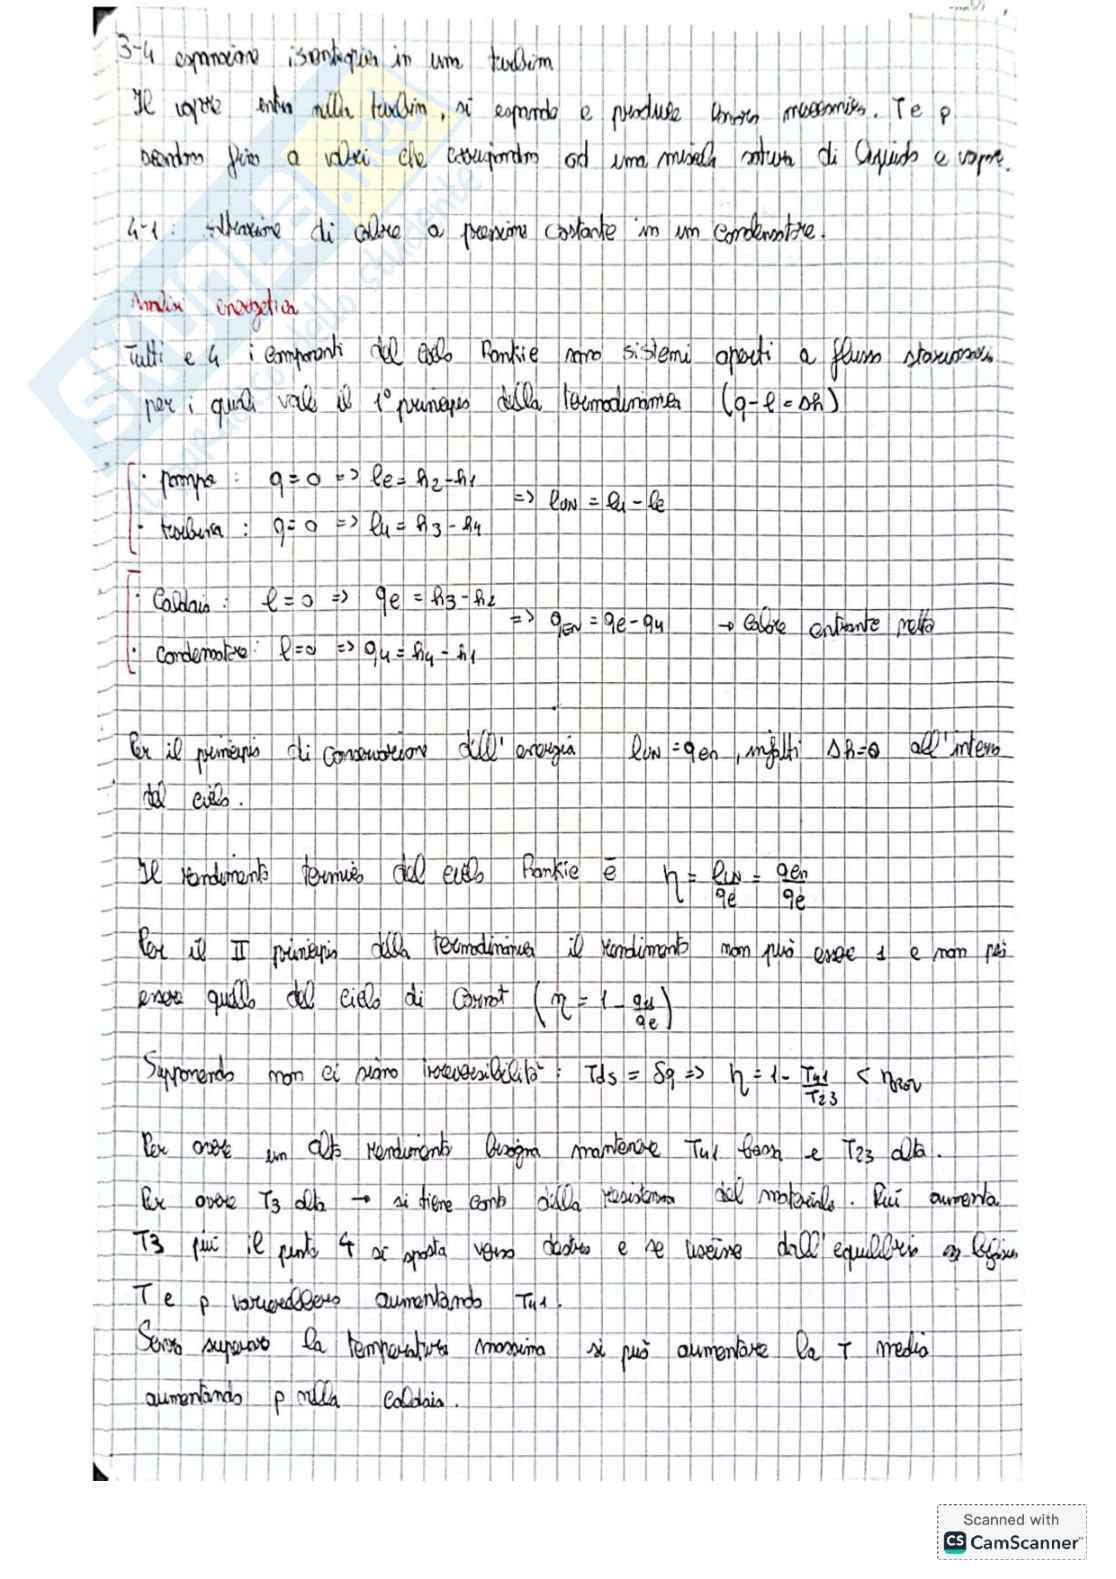 3-4 espansione isentropica in una turbina
Il vapore entra nella turbina, si espande e produce lavoro meccanico. T e p
scendono fino a valori che corrispondono ad una miscela satura di liquido e vapore.
4-1: sottrazione di calore a pressione costante in un condensatore.
Analisi energetica
Tutti e 4 i componenti del ciclo Rankie sono sistemi aperti a flusso stazionario
per i quali vale il 1° principio della termodinamica (q-l = Δh)
· pompa : q=0 => le = h2-h1
=> lUN = lu - le
· turbina : q=0 => lu = h3-h4
· Caldaia : l=0 => qe = h3-h2
=> qEN = qe-qu → calore entrante netto
· condensatore : l=0 => qu = h4-h1
Per il principio di conservazione dell'energia lUN = qen, infatti Δh=0 all'interno
del ciclo.
Il rendimento termico del ciclo Rankie è η = lUN/qe = qen/qe
Per il II principio della termodinamica il rendimento non può essere 1 e non può
essere quello del ciclo di Carnot (η = 1 - qu/qe)
Supponendo non ci siano irreversibilità: Tds = δq => η = 1 - T41/T23 < ηrev
Per avere un alto rendimento bisogna mantenere T41 bassa e T23 alta.
Per avere T3 alta → si tiene conto della resistenza del materiale. Più aumenta
T3 più il punto 4 si sposta verso destra e se uscisse dall'equilibrio
T e p varierebbero aumentando T41.
Senza superare la temperatura massima si può aumentare la T media
aumentando p nella caldaia.
SKUOLA.net
Scanned with
CS CamScanner